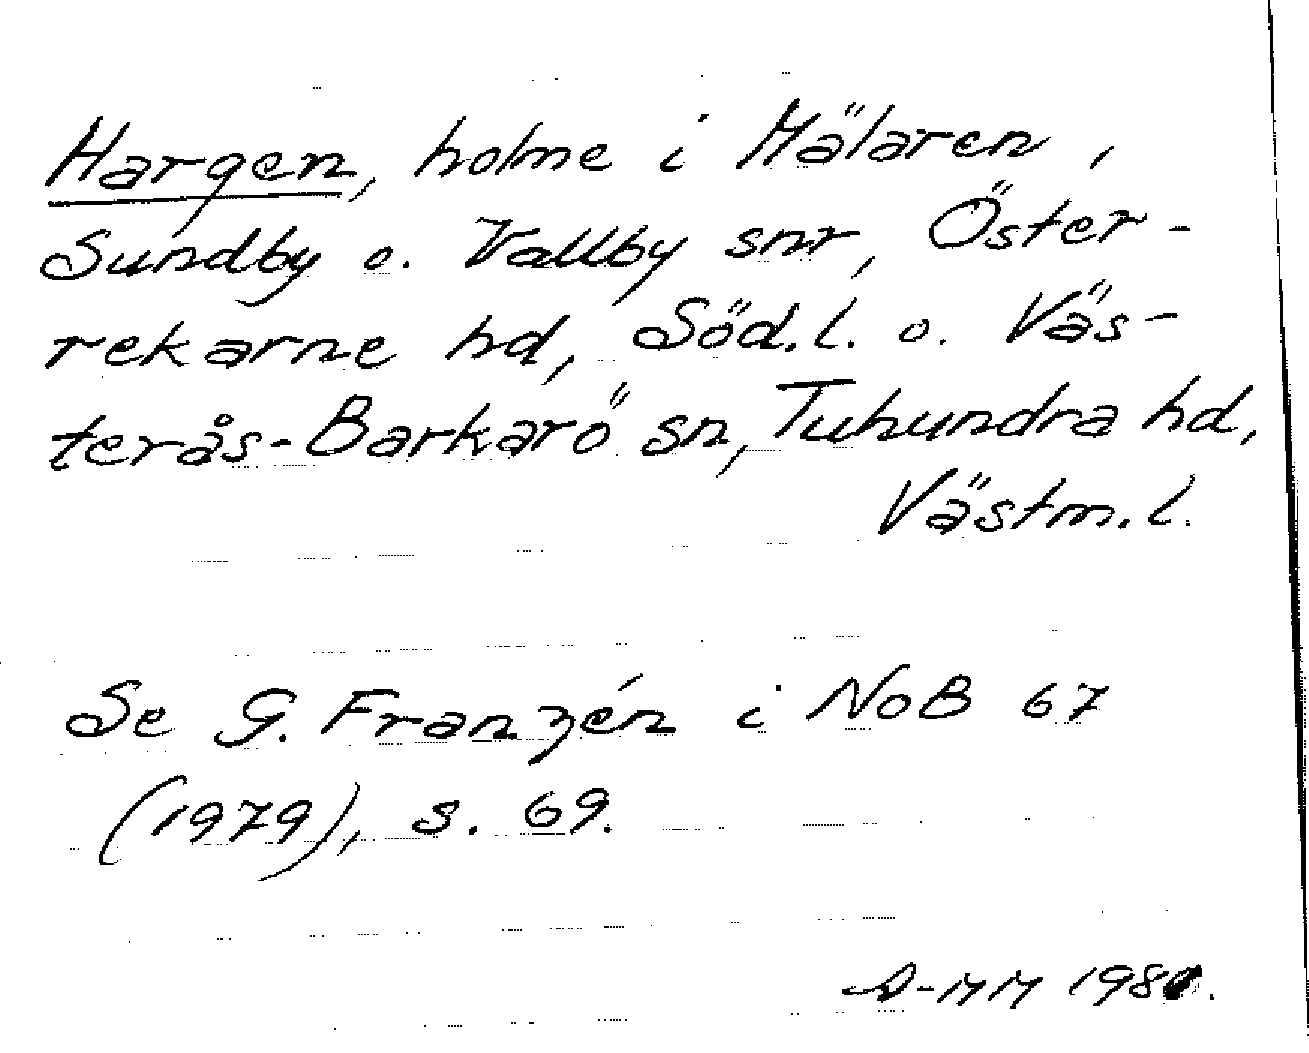 Hargen, holme i Mälaren,
Sundby o. Vallby snr, Öster-
rekarne hd, Söd.l. o. Väs-
terås-Barkarö sn, Tuhundra hd,
Västm.l.
Se G. Franzén i NoB 67
(1979), s. 69.